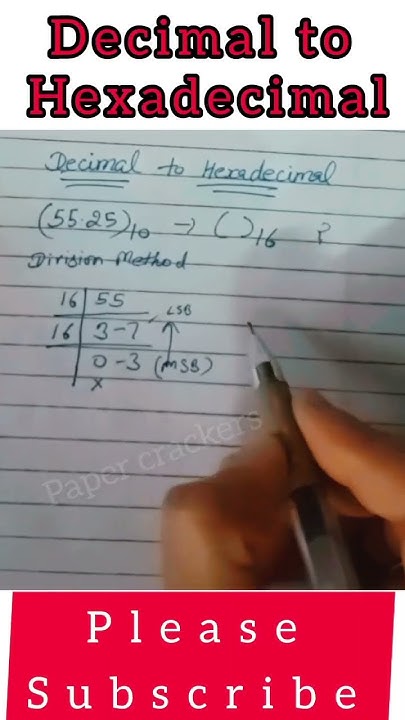 Decimal to
Hexadecimal
Decimal to Hexadecimal
(55.25)10 → ( )16 ?
Division Method
16 | 55
16 | 3-7 LSB
0-3 (MSB)
x
Paper crackers
Please
Subscribe